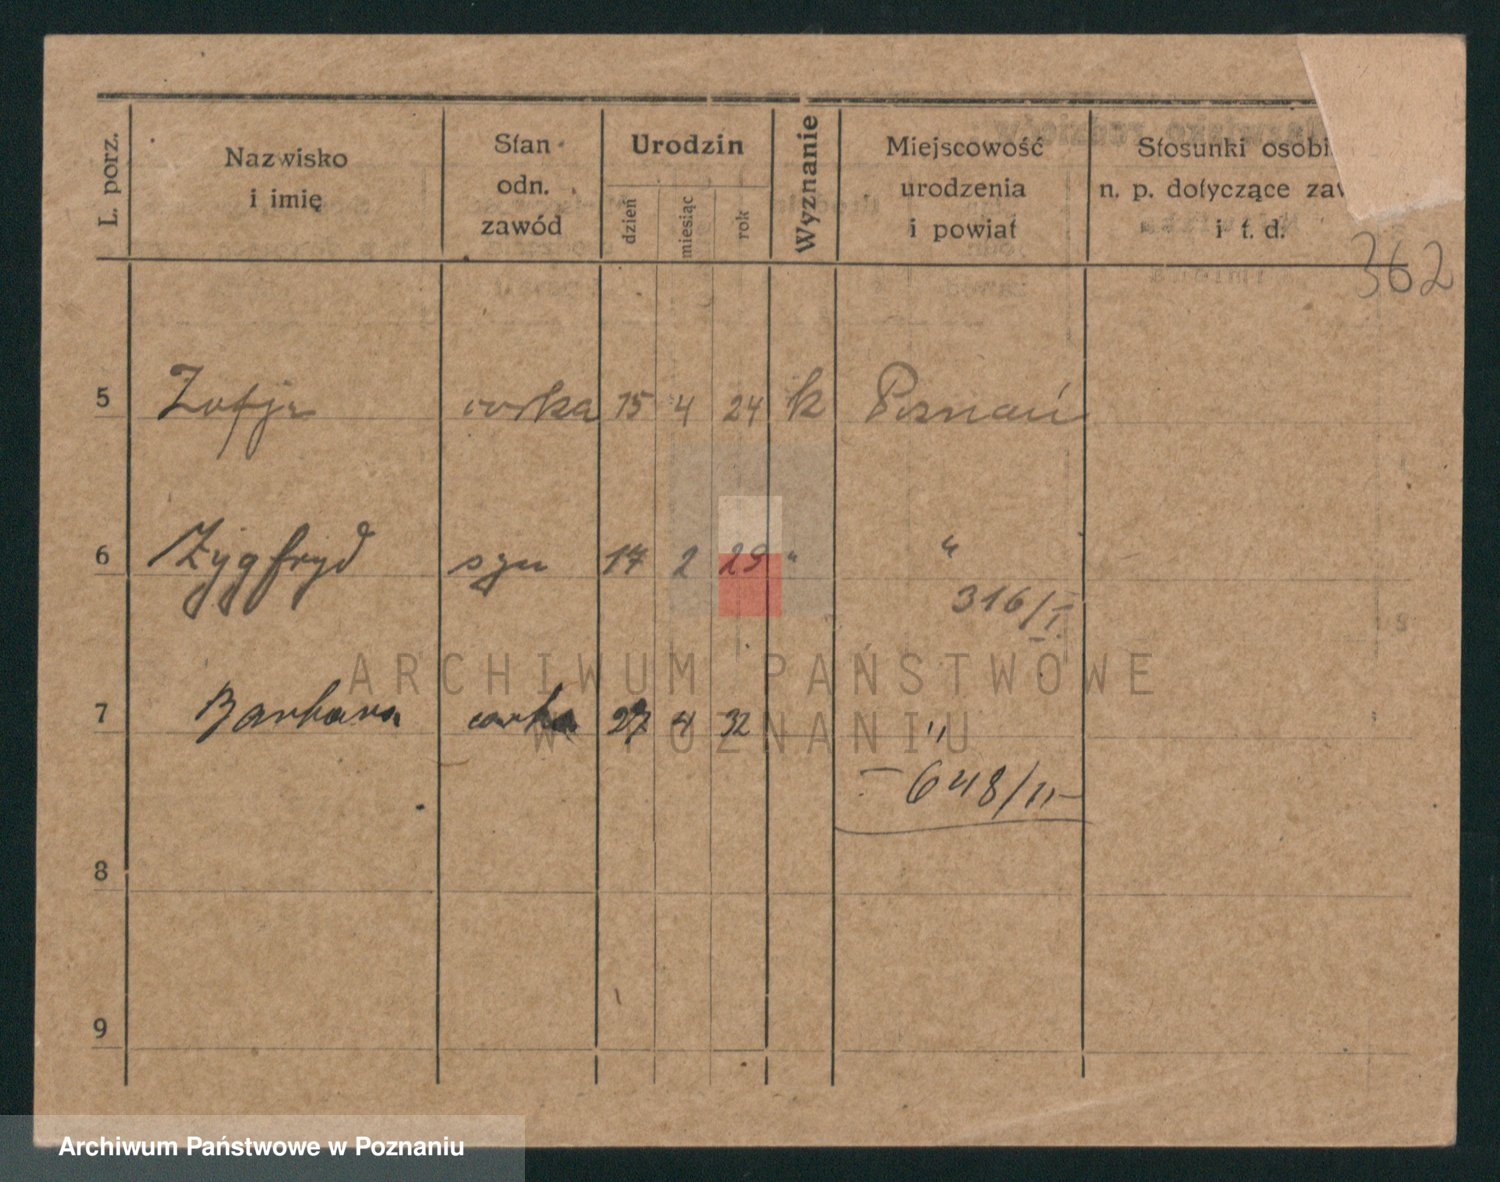 L. porz.
Nazwisko
i imię
Stan
odn.
zawód
Urodzin
dzień
miesiąc
rok
Wyznanie
Miejscowość
urodzenia
i powiat
Stosunki osobi
n. p. dotyczące zaw
i t. d.
362
5 Zofje corka 15 4 24 k Poznań
6 Zygfryd syn 17 2 29 " "
316/I
7 Barbara corka 27 4 32 "
- 648/II -
8
9
ARCHIWUM PAŃSTWOWE
W POZNANIU
Archiwum Państwowe w Poznaniu